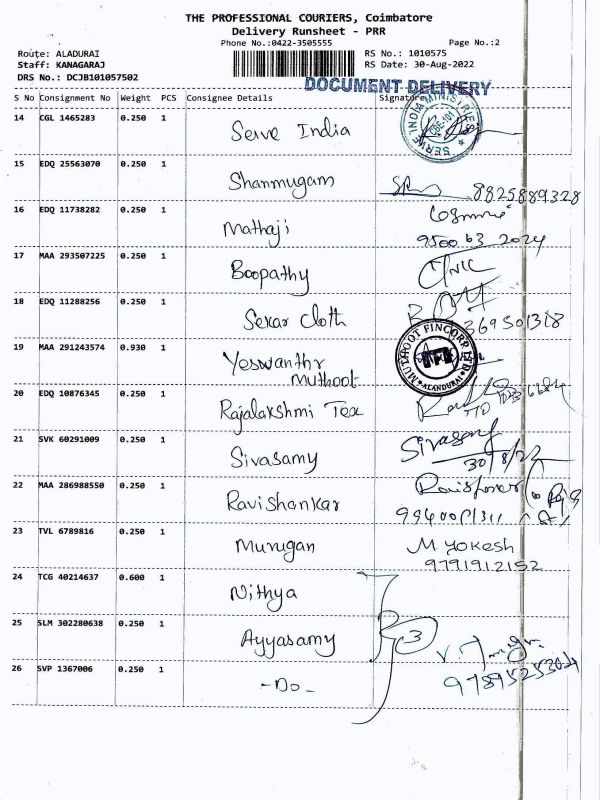 THE PROFESSIONAL COURIERS, Coimbatore
Delivery Runsheet - PRR
Phone No.:0422-3505555 Page No.:2
Route: ALADURAI RS No.: 1010575
Staff: KANAGARAJ RS Date: 30-Aug-2022
DRS No.: DCJB101057502
DOCUMENT DELIVERY
S No Consignment No Weight PCS Consignee Details Signature
14 CGL 1465283 0.250 1 Serve India
SERVE INDIA MINISTRIES
CBE-101
15 EDQ 25563070 0.250 1 Shanmugam 8825889328
16 EDQ 11738282 0.250 1 Mathaji
9500 63 2024
17 MAA 293507225 0.250 1 Boopathy
18 EDQ 11288256 0.250 1 Sekar Cloth
19 MAA 291243574 0.930 1 Yeswanthr
Muthoot
MUTHOOT FINCORP LTD
20 EDQ 10876345 0.250 1 Rajalakshmi Tex
21 SVK 60291009 0.250 1 Sivasamy Sivasamy
30/8/22
22 MAA 286988550 0.250 1 Ravishankar
23 TVL 6789816 0.250 1 Murugan M YOKESH
9791912152
24 TCG 40214637 0.600 1 Nithya
25 SLM 302280638 0.250 1 Ayyasamy 3
26 SVP 1367006 0.250 1 -Do-